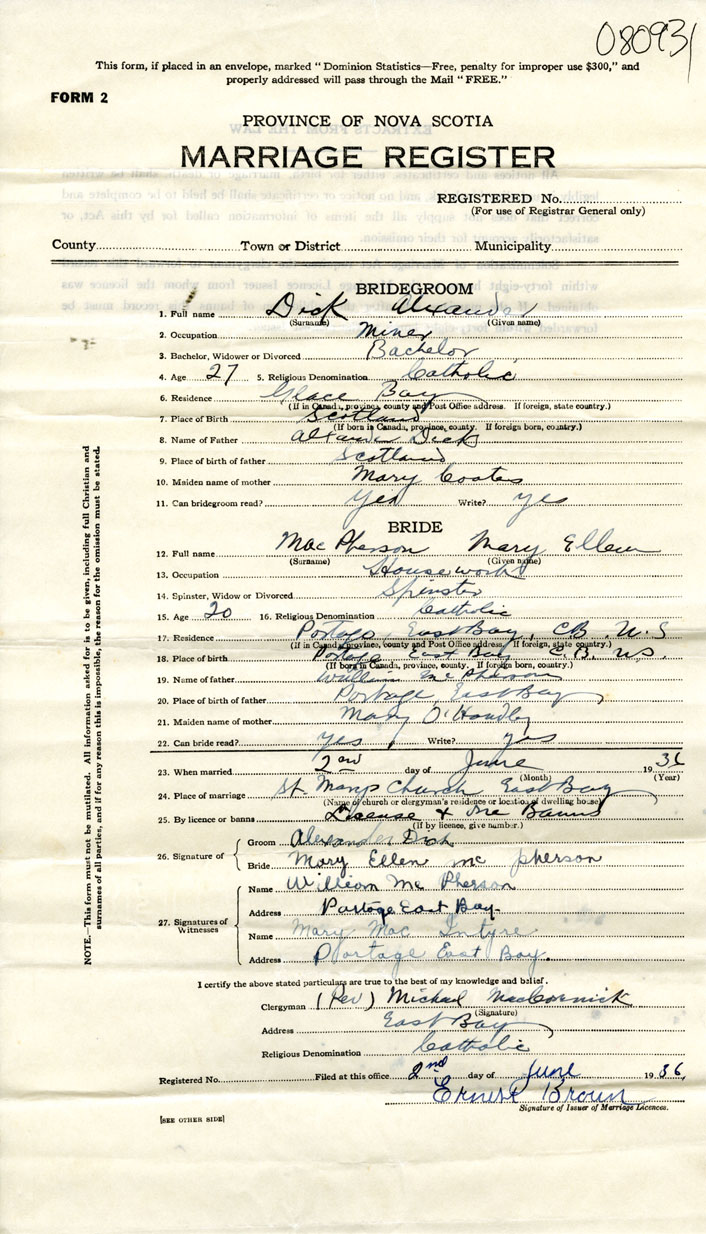 080931
This form, if placed in an envelope, marked "Dominion Statistics—Free, penalty for improper use $300," and
properly addressed will pass through the Mail "FREE."
FORM 2
PROVINCE OF NOVA SCOTIA
MARRIAGE REGISTER
REGISTERED No.
(For use of Registrar General only)
County Town or District Municipality
BRIDEGROOM
1. Full name Dick Alxander
(Surname) (Given name)
2. Occupation Miner
3. Bachelor, Widower or Divorced Bachelor
4. Age 27 5. Religious Denomination Catholic
6. Residence Glace Bay
(If in Canada, province, county and Post Office address. If foreign, state country.)
7. Place of Birth Scotland
(If born in Canada, province, county. If foreign born, country.)
8. Name of Father Dick
9. Place of birth of father Scotland
10. Maiden name of mother Mary Coates
11. Can bridegroom read? Yes Write? yes
BRIDE
12. Full name MacPherson Mary Ellen
(Surname) (Given name)
13. Occupation Housework
14. Spinster, Widow or Divorced Spinster
15. Age 20 16. Religious Denomination Catholic
17. Residence Portage East Bay, CB N.S
(If in Canada, province, county and Post Office address. If foreign, state country.)
18. Place of birth Portage East Bay C.B. N.S.
(If born in Canada, province, county. If foreign born, country.)
19. Name of father William McPherson
20. Place of birth of father Portage East Bay
21. Maiden name of mother Mary O'Handley
22. Can bride read? yes Write? yes
23. When married 2nd day of June 1936
(Month) (Year)
24. Place of marriage St. Marys Church East Bay
(Name of church or clergyman's residence or location of dwelling house)
25. By licence or banns License & Banns
(If by licence, give number.)
26. Signature of
Groom Alexander Dick
Bride Mary Ellen mc pherson
27. Signatures of Witnesses
Name William Mc Pherson
Address Portage East Bay
Name Mary Mac Intyre
Address Portage East Bay.
I certify the above stated particulars are true to the best of my knowledge and belief.
Clergyman (Rev) Michael MacCormick
(Signature)
Address East Bay
Religious Denomination Catholic
Registered No. Filed at this office 2nd day of June 1936,
Ernest Brown
Signature of Issuer of Marriage Licences.
[SEE OTHER SIDE]
NOTE.—This form must not be mutilated. All information asked for is to be given, including full Christian and
surnames of all parties, and if for any reason this is impossible, the reason for the omission must be stated.